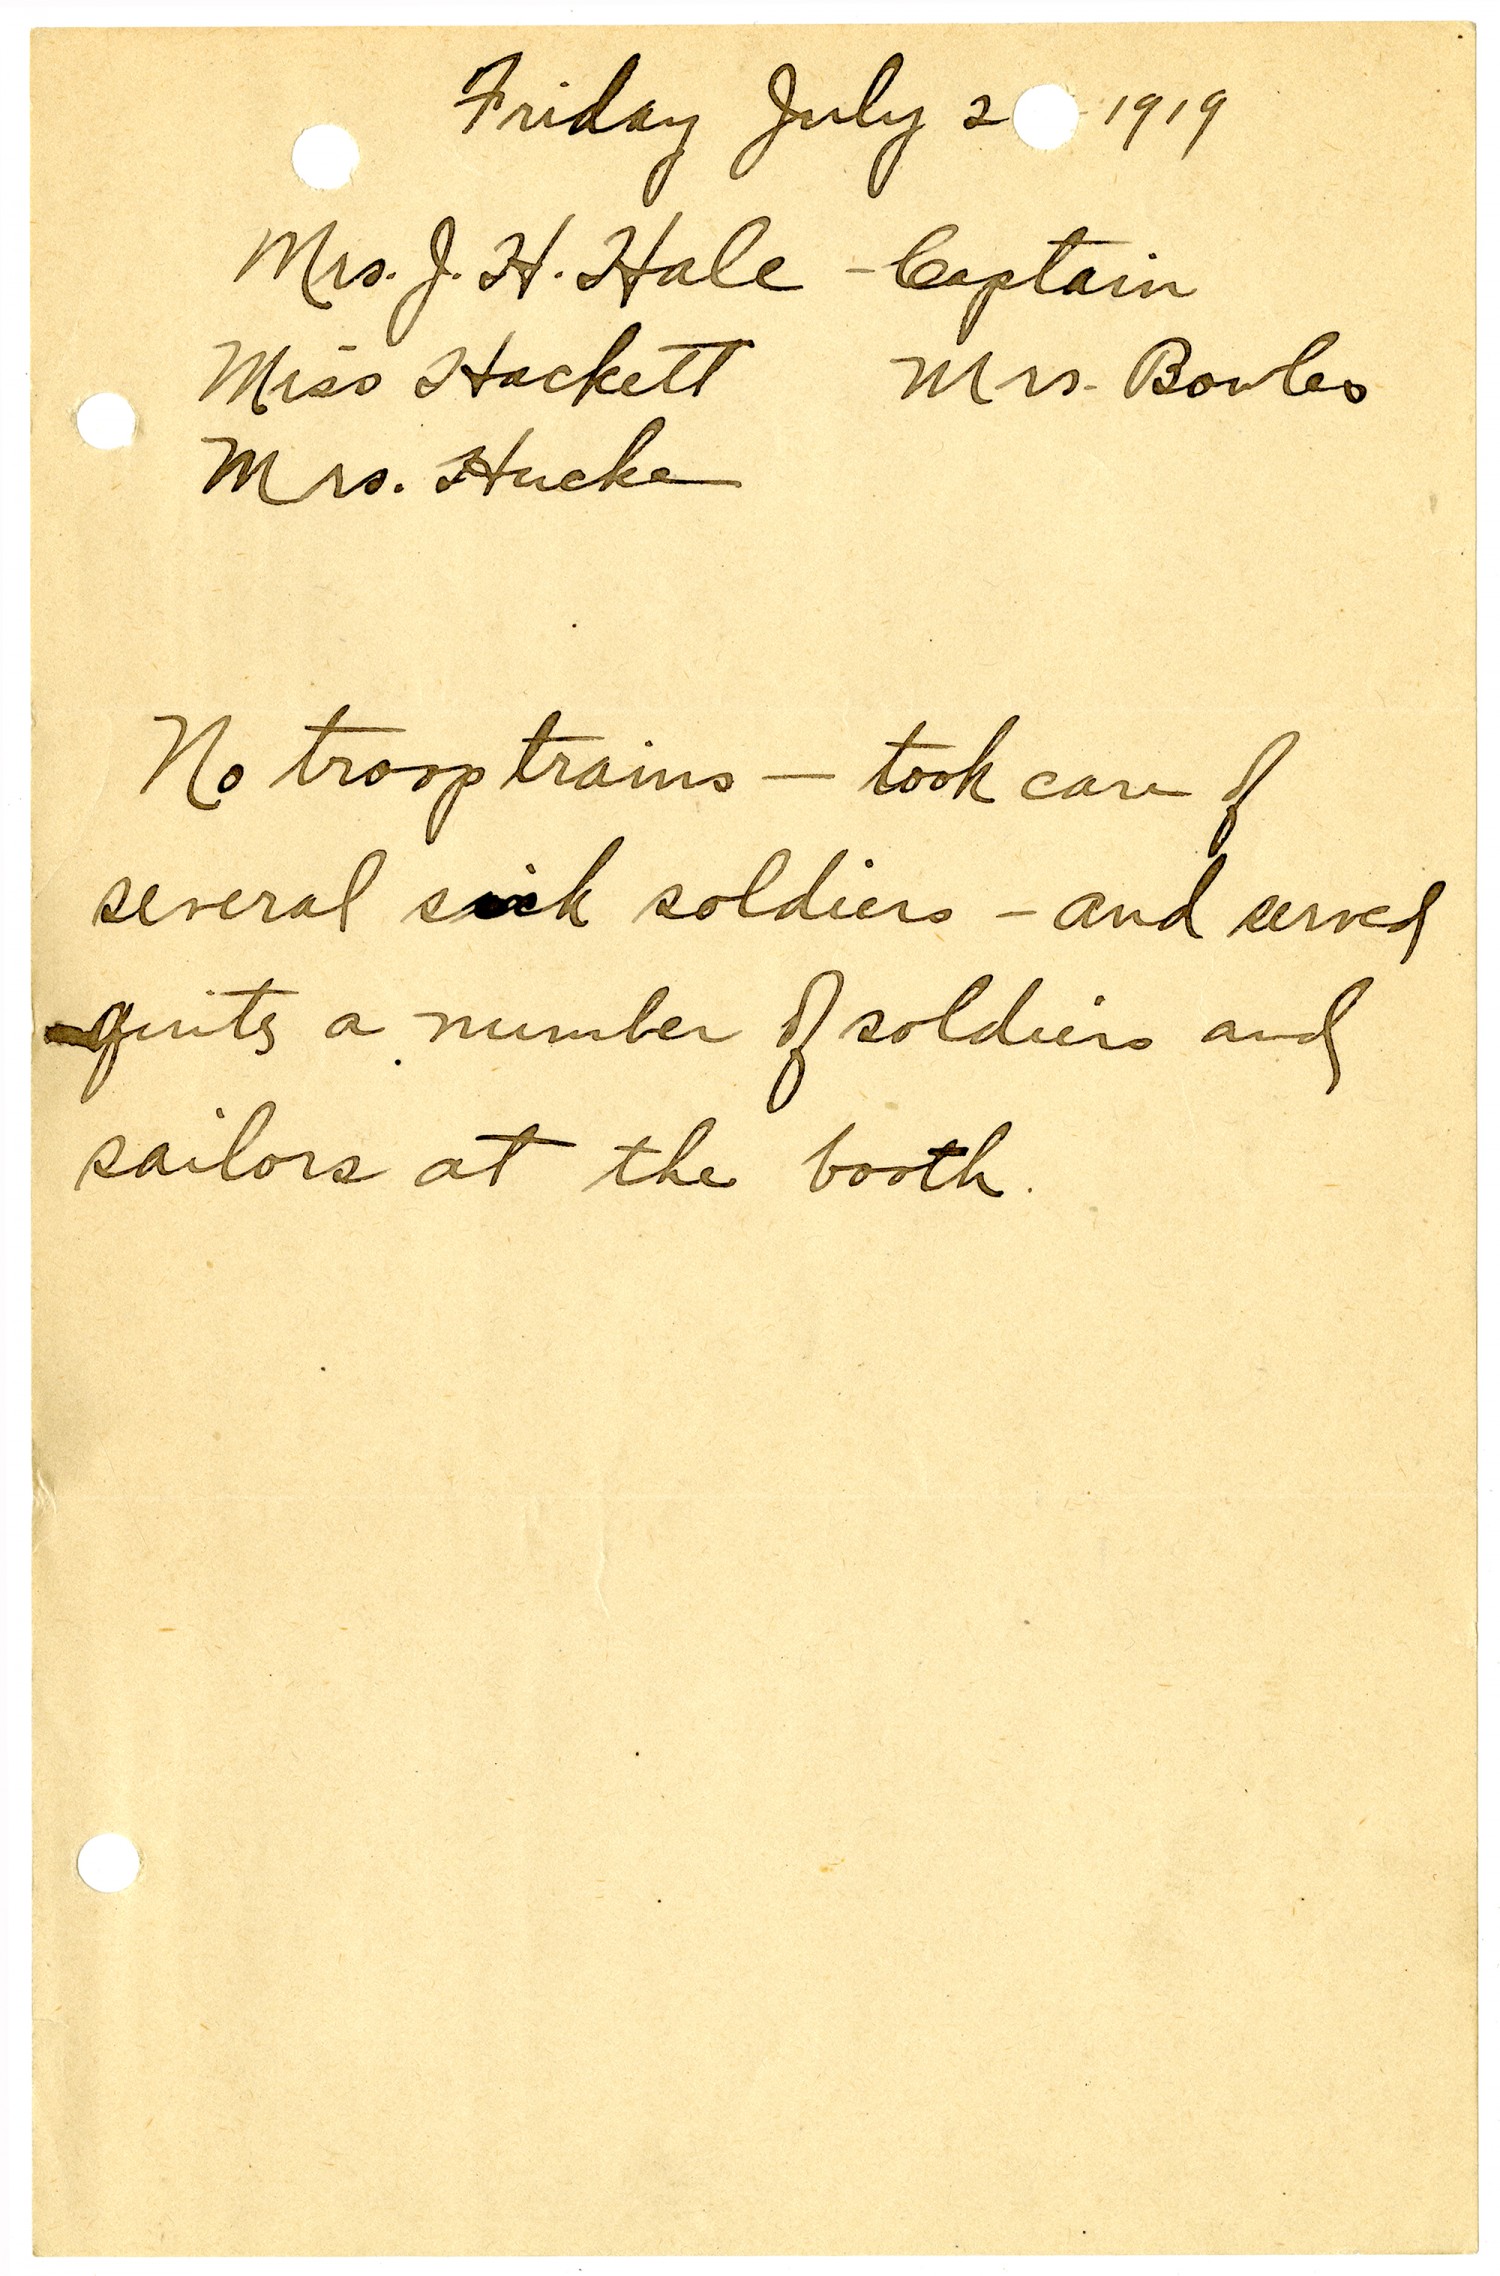 Friday July 2 1919
Mrs. J. H. Hale - Captain
Miss Hackett Mrs. Bowles
Mrs. Hucke
No troop trains — took care of
several sick soldiers - and served
quite a number of soldiers and
sailors at the booth.